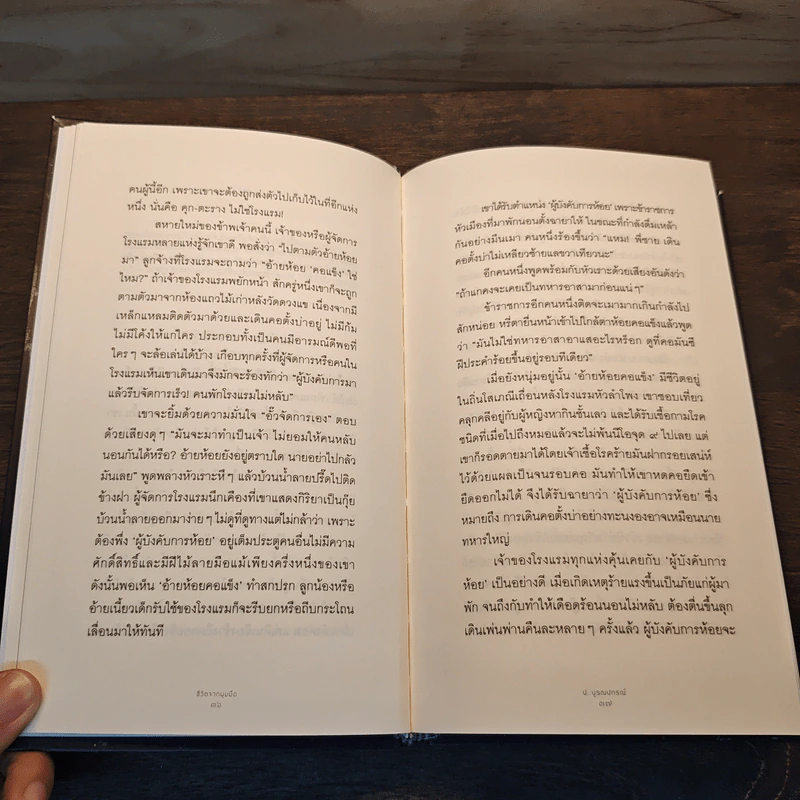 คนผู้นี้อีก เพราะเขาจะต้องถูกส่งตัวไปเก็บไว้ในที่อีกแห่ง
หนึ่ง นั่นคือ คุก-ตะราง ไม่ใช่โรงแรม!
สหายใหม่ของข้าพเจ้าคนนี้ เจ้าของหรือผู้จัดการ
โรงแรมหลายแห่งรู้จักเขาดี พอสั่งว่า “ไปตามตัวอ้ายห้อย
มา” ลูกจ้างที่โรงแรมจะถามว่า “อ้ายห้อย ‘คอแข็ง’ ใช่
ไหม?” ถ้าเจ้าของโรงแรมพยักหน้า สักครู่หนึ่งเขาก็จะถูก
ตามตัวมาจากห้องแถวไม้เก่าหลังวัดดวงแข เนื่องจากมี
เหล็กแหลมติดตัวมาด้วยและเดินคอตั้งบ่าอยู่ ไม่มีก้ม
ไม่มีโค้งให้แก่ใคร ประกอบทั้งเป็นคนมีอารมณ์ดีพอที่
ใครๆ จะล้อเล่นได้บ้าง เกือบทุกครั้งที่ผู้จัดการหรือคนใน
โรงแรมเห็นเขาเดินมาจึงมักจะร้องทักว่า “ผู้บังคับการมา
แล้วรีบจัดการเร็ว! คนพักโรงแรมไม่หลับ”
เขาจะยิ้มด้วยความมั่นใจ “อั๊วจัดการเอง” ตอบ
ด้วยเสียงดุๆ “มันจะมาทำเป็นเจ้า ไม่ยอมให้คนหลับ
นอนกันได้หรือ? อ้ายห้อยยังอยู่ตราบใด นายอย่าไปกลัว
มันเลย” พูดพลางหัวเราะหึๆ แล้วบ้วนน้ำลายปรี๊ดไปติด
ข้างฝา ผู้จัดการโรงแรมนึกเคืองที่เขาแสดงกิริยาเป็นกุ๊ย
บ้วนน้ำลายออกมาง่ายๆ ไม่ดูที่ดูทางแต่ไม่กล้าว่า เพราะ
ต้องพึ่ง ‘ผู้บังคับการห้อย’ อยู่เต็มประตูคนอื่นไม่มีความ
ศักดิ์สิทธิ์และมีฝีไม้ลายมือแม้เพียงครึ่งหนึ่งของเขา
ดังนั้นพอเห็น ‘อ้ายห้อยคอแข็ง’ ทำสกปรก ลูกน้องหรือ
อ้ายเนี้ยวเด็กรับใช้ของโรงแรมก็จะรีบยกหรือถีบกระโถน
เลื่อนมาให้ทันที
ชีวิตจากมุมมืด
๓๖
เขาได้รับตำแหน่ง ‘ผู้บังคับการห้อย’ เพราะข้าราชการ
หัวเมืองที่มาพักนอนตั้งฉายาให้ ในขณะที่กำลังดื่มเหล้า
กันอย่างมึนเมา คนหนึ่งร้องขึ้นว่า “แหม! พี่ชาย เดิน
คอตั้งบ่าไม่เหลียวซ้ายแลขวาเทียวนะ”
อีกคนหนึ่งพูดพร้อมกับหัวเราะด้วยเสียงอันดังว่า
“ถ้าแกคงจะเคยเป็นทหารอาสามาก่อนแน่ๆ”
ข้าราชการอีกคนหนึ่งติดจะเมามากเกินกำลังไป
สักหน่อย หรี่ตายื่นหน้าเข้าไปใกล้ตาห้อยคอแข็งแล้วพูด
ว่า “มันไม่ใช่ทหารอาสาอาแสอะไรหร็อก ดูที่คอมันซี
ฝีประคำร้อยขึ้นอยู่รอบทีเดียว”
เมื่อยังหนุ่มอยู่นั้น ‘อ้ายห้อยคอแข็ง’ มีชีวิตอยู่
ในถิ่นโสเภณีเถื่อนหลังโรงแรมหัวลำโพง เขาชอบเที่ยว
คลุกคลีอยู่กับผู้หญิงหากินชั้นเลว และได้รับเชื้อกามโรค
ชนิดที่เมื่อไปถึงหมอแล้วจะไม่พ้นนีโอจุด ๙ ไปเลย แต่
เขาก็รอดตายมาได้โดยเจ้าเชื้อโรคร้ายมันฝากรอยเสน่ห์
ไว้ด้วยแผลเป็นจนรอบคอ มันทำให้เขาหดคอยืดเข้า
ยืดออกไม่ได้ จึงได้รับฉายาว่า ‘ผู้บังคับการห้อย’ ซึ่ง
หมายถึง การเดินคอตั้งบ่าอย่างทะนงองอาจเหมือนนาย
ทหารใหญ่
เจ้าของโรงแรมทุกแห่งคุ้นเคยกับ ‘ผู้บังคับการ
ห้อย’ เป็นอย่างดี เมื่อเกิดเหตุร้ายแรงขึ้นเป็นภัยแก่ผู้มา
พัก จนถึงกับทำให้เดือดร้อนนอนไม่หลับ ต้องตื่นขึ้นลุก
เดินเพ่นพ่านคืนละหลายๆ ครั้งแล้ว ผู้บังคับการห้อยจะ
ป. บูรณปกรณ์
๓๗